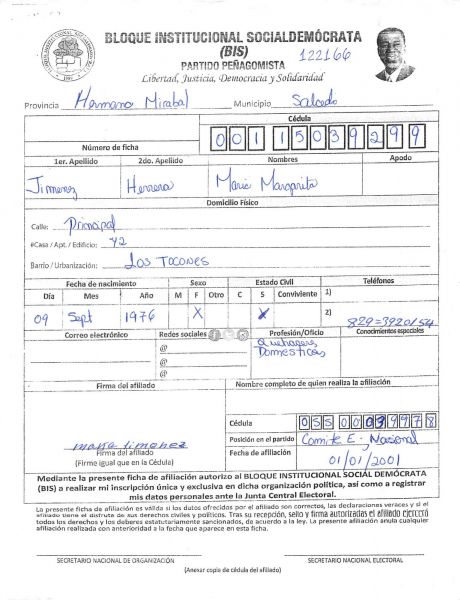 BLOQUE INSTITUCIONAL SOCIALDEMÓCRATA
(BIS)
122166
PARTIDO PEÑAGOMISTA
Libertad, Justicia, Democracia y Solidaridad
Provincia Hermana Mirabal Municipio Salcedo
Cédula
Número de ficha 00115039299
1er. Apellido 2do. Apellido Nombres Apodo
Jimenez Herrera Maria Margarita
Domicilio Físico
Calle: Principal
#Casa / Apt. / Edificio: 42
Barrio / Urbanización: Los Tocones
Fecha de nacimiento Sexo Estado Civil Teléfonos
Día Mes Año M F Otro C S Conviviente 1)
09 Sept 1976 X X 2) 829=3920154
Correo electrónico Redes sociales Profesión/Oficio Conocimientos especiales
@ Quehaceres
@ Domesticos
@
Firma del afiliado Nombre completo de quien realiza la afiliación
Cédula
maria jimenez Posición en el partido Comite E. Nacional
Firma del afiliado Fecha de afiliación 01/01/2001
(Firme igual que en la Cédula)
Mediante la presente ficha de afiliación autorizo al BLOQUE INSTITUCIONAL SOCIAL DEMÓCRATA
(BIS) a realizar mi inscripción única y exclusiva en dicha organización política, así como a registrar
mis datos personales ante la Junta Central Electoral.
La presente ficha de afiliación es válida si los datos ofrecidos por el afiliado son correctos, las declaraciones veraces y si el
afiliado tiene el disfrute de sus derechos civiles y políticos. Tras su recepción, sello y firma autorizadas el afiliado ejercerá
todos los derechos y los deberes estatutariamente sancionados, de acuerdo a la ley. La presente afiliación anula cualquier
afiliación realizada con anterioridad a la fecha que aparece en esta ficha.
SECRETARIO NACIONAL DE ORGANIZACIÓN SECRETARIO NACIONAL ELECTORAL
(Anexar copia de cédula del afiliado)